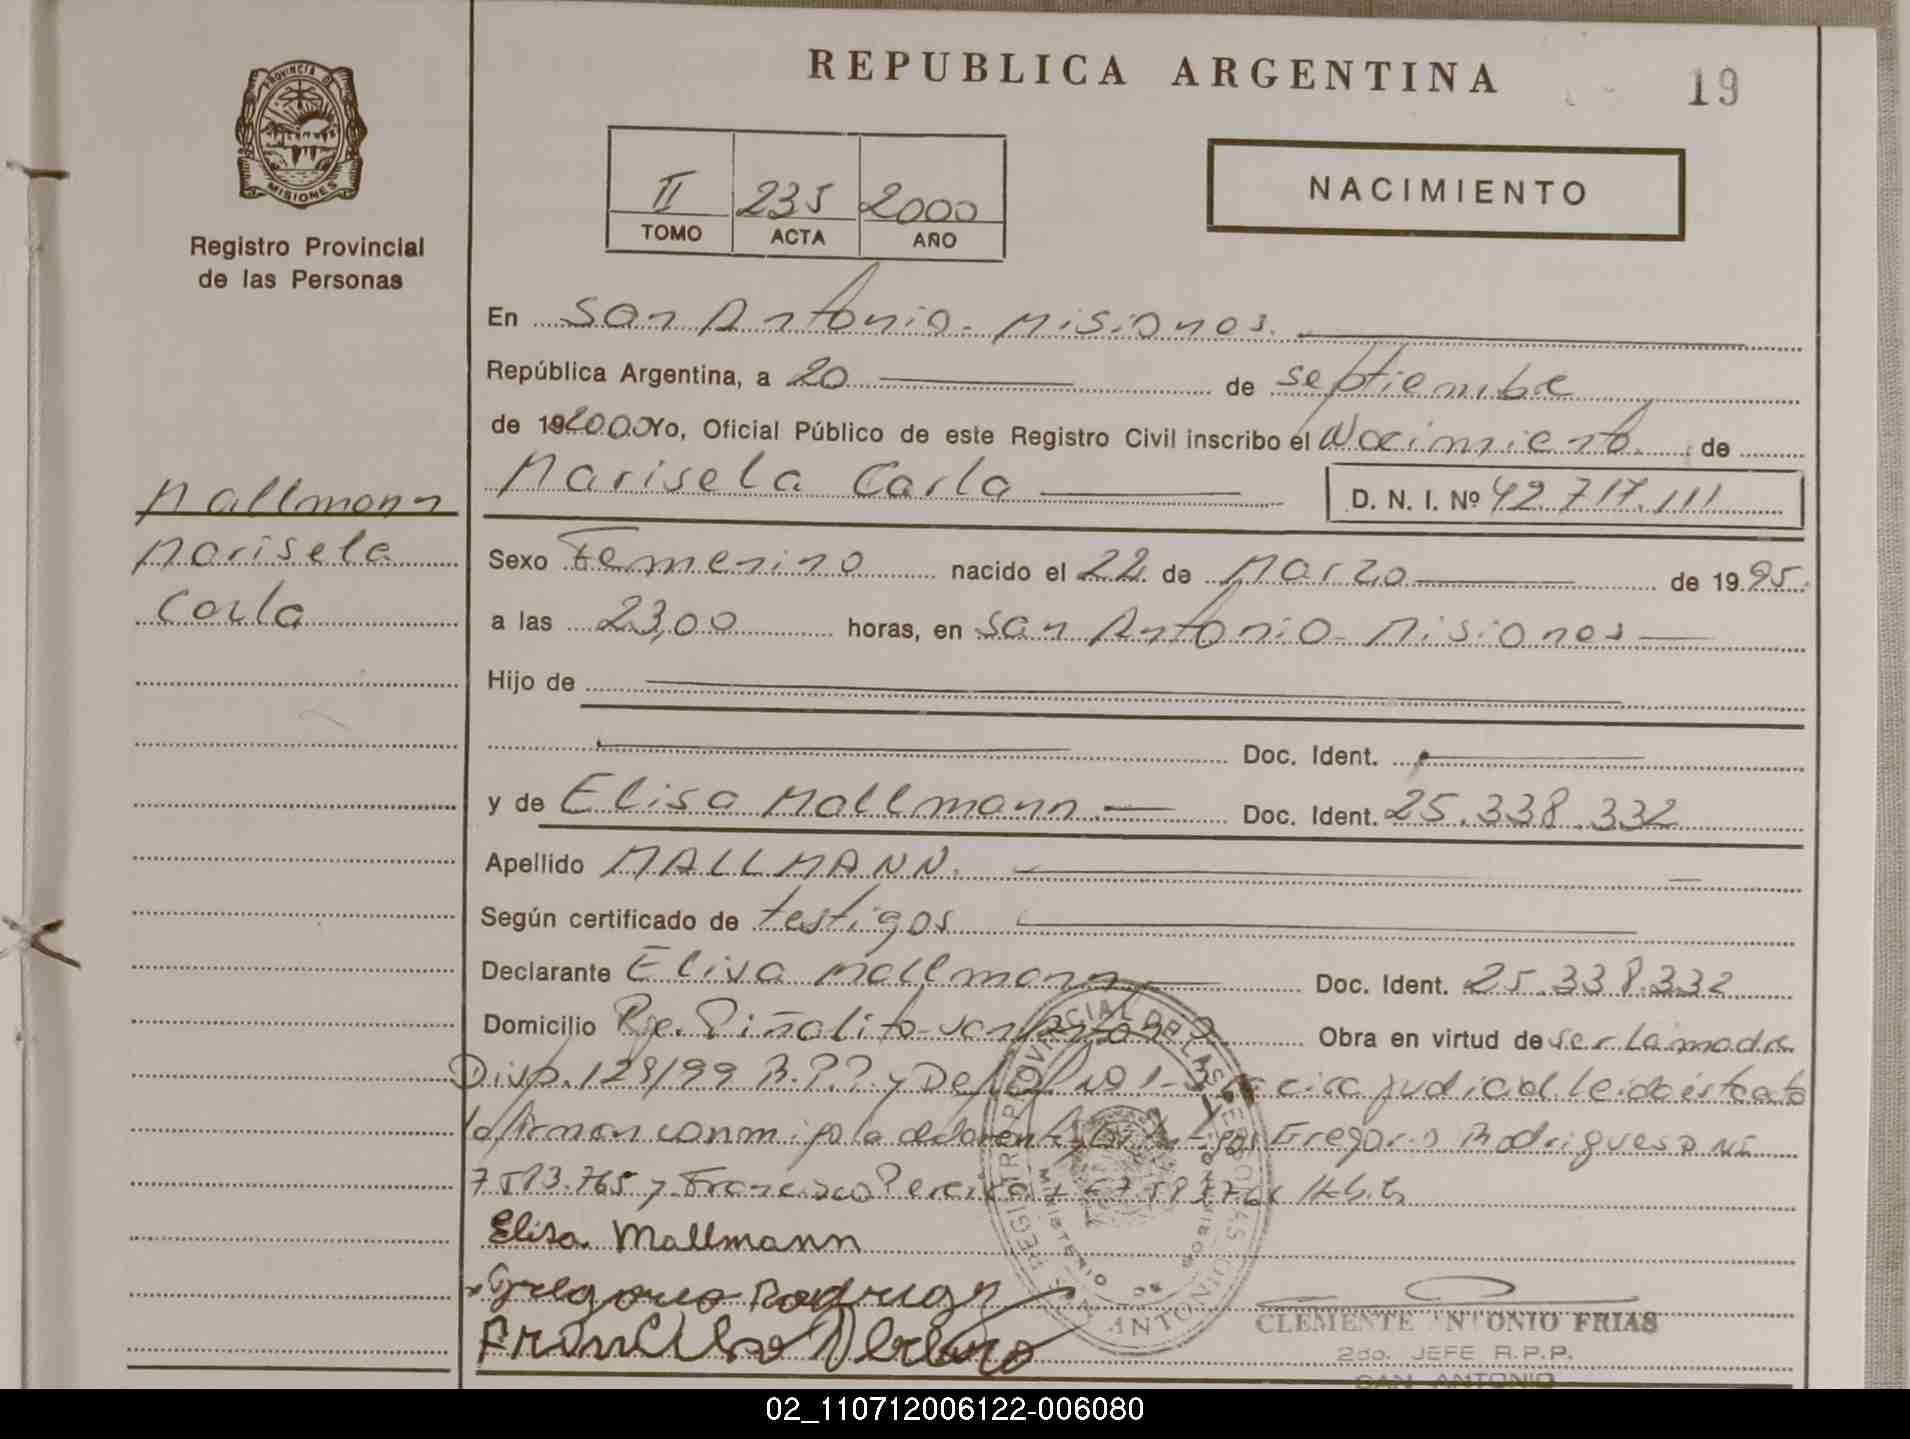 REPUBLICA ARGENTINA
19
PROVINCIA DE
MISIONES
Registro Provincial
de las Personas
II 235 2000
TOMO ACTA AÑO
NACIMIENTO
En San Antonio - Misiones.
República Argentina, a 20 de septiembre
de 19 2000 Yo, Oficial Público de este Registro Civil inscribo el Nacimiento de
Marisela Carla D. N. I. Nº 42.717.111
Mallmann
Marisela
Carla
Sexo Femenino nacido el 22 de Marzo de 1995.
a las 23,00 horas, en San Antonio - Misiones
Hijo de
Doc. Ident.
y de Elisa Mallmann. Doc. Ident. 25.338.332
Apellido MALLMANN.
Según certificado de testigos
Declarante Elisa Mallmann Doc. Ident. 25.338.332
Domicilio Pje. Piñalito - San Antonio. Obra en virtud de ser la madre
Disp. 128/99 R.P.P. y circ judicial. leida esta acta
la firman conmigo la Gregorio Rodrigues DNI
7.513.765 y Francisco
Elisa. Mallmann
Gregorio Rodrigz
REGISTRO PROVINCIAL DE LAS PERSONAS
MINISTERIO DE
SAN ANTONIO
CLEMENTE ANTONIO FRIAS
2do. JEFE R.P.P.
SAN ANTONIO
02_110712006122-006080